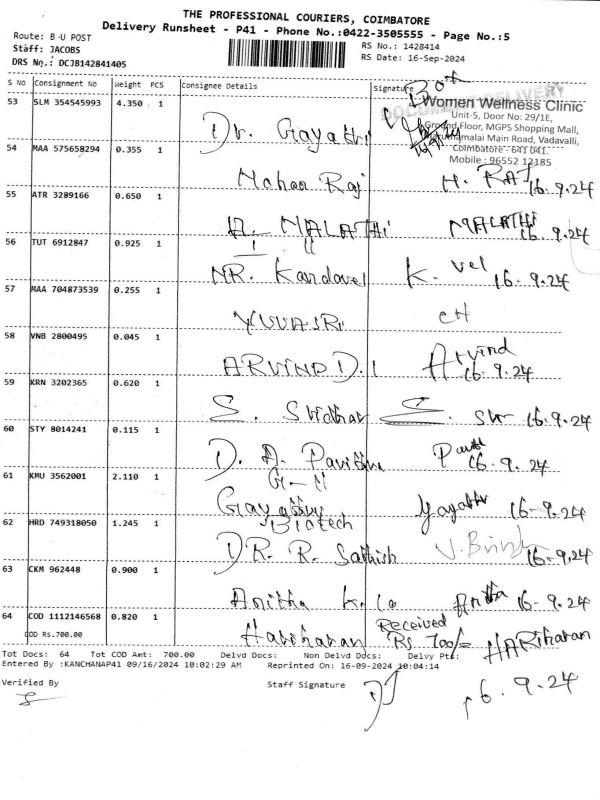 THE PROFESSIONAL COURIERS, COIMBATORE
Delivery Runsheet - P41 - Phone No.:0422-3505555 - Page No.:5
Route: B U POST
Staff: JACOBS
DRS No.: DCJB142841405
RS No.: 1428414
RS Date: 16-Sep-2024
S No Consignment No Weight PCS Consignee Details Signature
53 SLM 354545993 4.350 1 Dr. Gayathri
Women Wellness Clinic
Unit-5, Door No: 29/1E,
Ground Floor, MGPS Shopping Mall,
Main Road, Vadavalli,
Coimbatore - 641 041.
Mobile : 96552 12185
54 MAA 575658294 0.355 1 Mohan Raj M. RAJ 16.9.24
55 ATR 3289166 0.650 1 A. MALATHI MALATHI 16.9.24
56 TUT 6912847 0.925 1 MR. Kandavel K. vel 16.9.24
57 MAA 704873539 0.255 1 YUVASRI
58 VNB 2800495 0.045 1 ARVIND D. I Arvind
16.9.24
59 KRN 3202365 0.620 1 S. Sridhar S. 16.9.24
60 STY 8014241 0.115 1 D. A. Pavithra
16.9.24
61 KMU 3562001 2.110 1 Gayathri Gayathri 16.9.24
Biotech
62 HRD 749318050 1.245 1 DR. R. Sathish 16.9.24
63 CKM 962448 0.900 1 Anitha K. Anitha 16.9.24
64 COD 1112146568 0.820 1 Hariharan Received
COD Rs.700.00 Rs 700/= HARIHARAN
Tot Docs: 64 Tot COD Amt: 700.00 Delvd Docs: Non Delvd Docs: Delvy Pts:
Entered By :KANCHANAP41 09/16/2024 10:02:29 AM Reprinted On: 16-09-2024 10:04:14
16.9.24
Verified By Staff Signature